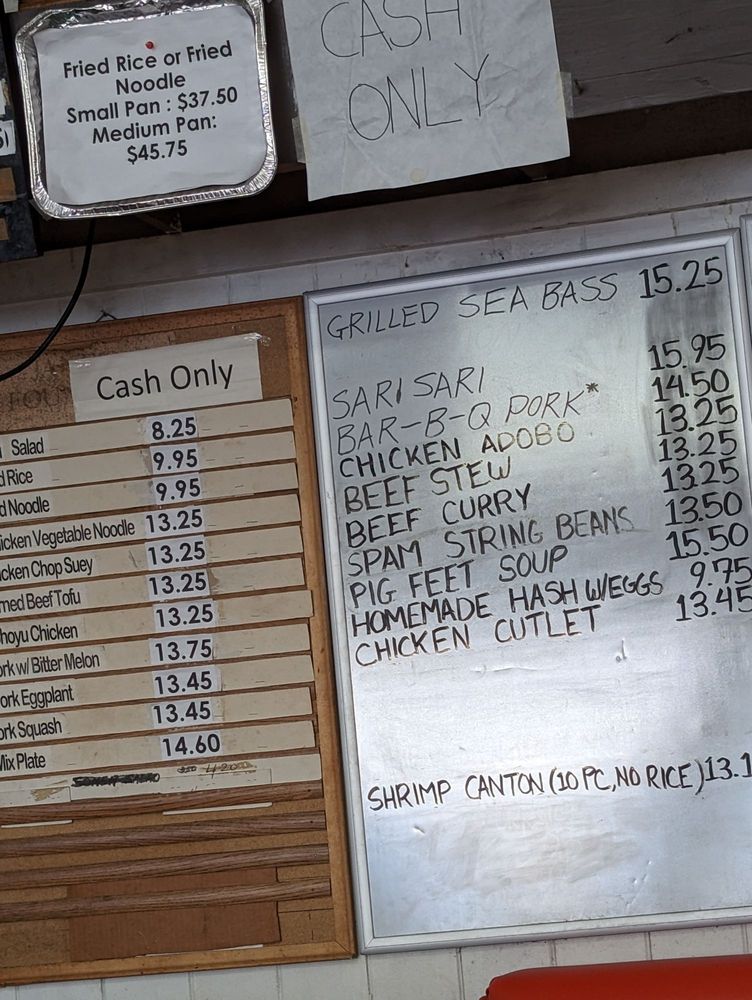 Fried Rice or Fried
Noodle
Small Pan : $37.50
Medium Pan:
$45.75
CASH
ONLY
Cash Only
Salad 8.25
Rice 9.95
Noodle 9.95
Vegetable Noodle 13.25
Chop Suey 13.25
Beef Tofu 13.25
Chicken 13.25
w/ Bitter Melon 13.75
Eggplant 13.45
Squash 13.45
Mix Plate 14.60
GRILLED SEA BASS 15.25
SARI SARI 15.95
BAR-B-Q PORK* 14.50
CHICKEN ADOBO 13.25
BEEF STEW 13.25
BEEF CURRY 13.25
SPAM STRING BEANS 13.50
PIG FEET SOUP 15.50
HOMEMADE HASH W/EGGS 9.75
CHICKEN CUTLET 13.45
SHRIMP CANTON (10 PC, NO RICE) 13.1